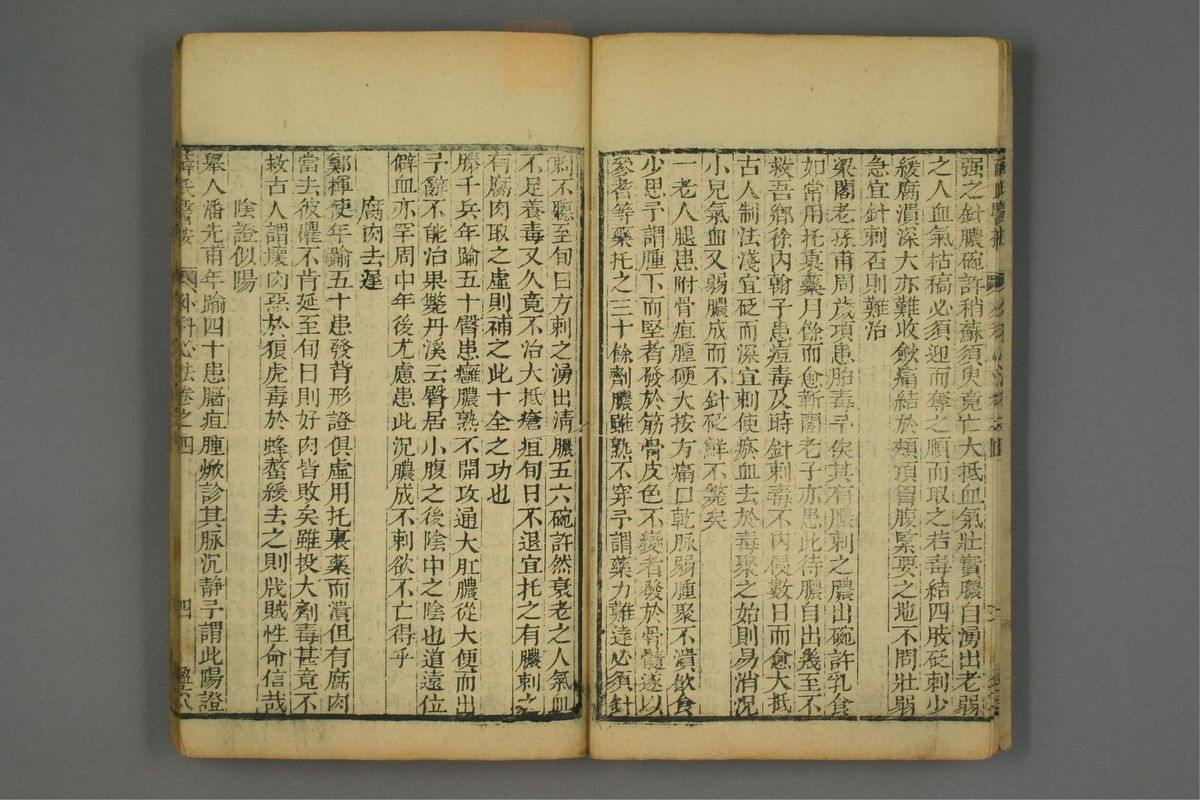 强之針膿碗許稍蘇須臾竟亡大抵血氣壯實膿自湧出老弱
之人血氣枯稿必須迎而奪之順而取之若毒結四肢砭刺少
緩腐潰深大亦難收斂痛結於頰項胷腹緊要之地不問壯弱
急宜針刺否則難治
梁閣老孫甫周歲項患胎毒予俟其有膿刺之膿出碗許乳食
如常用托裏藥月餘而愈靳閣老子亦患此待膿自出幾至不
救吾鄉徐內翰子患痘毒及時針刺毒不內侵數日而愈大抵
古人制法淺宜砭而深宜刺使瘀血去於毒聚之始則易消況
小兒氣血又弱膿成而不針砭鮮不斃矣
一老人腿患附骨疽腫硬大按方痛口乾脉弱腫聚不潰飲食
少思予謂腫下而堅者發於筋骨皮色不變者發於骨髓遂以
參耆等藥托之三十餘劑膿雖熟不穿予謂藥力難達必須針
刺不聽至旬日方刺之湧出清膿五六碗許然衰老之人氣血
不足養毒又久竟不治大抵瘡疽旬日不退宜托之有膿刺之
有腐肉取之虛則補之此十全之功也
滕千兵年踰五十臀患癰膿熟不開攻通大肛膿從大便而出
予辭不能治果斃丹溪云臀居小腹之後陰中之陰也道遠位
僻血亦罕周中年後尤慮患此況膿成不刺欲不亡得乎
腐肉去遲
鄭揮使年踰五十患發背形證俱虛用托裏藥而潰但有腐肉
當去彼懼不肯延至旬日則好肉皆敗矣雖投大劑毒甚竟不
救古人謂壞肉惡於狼虎毒於蜂螫緩去之則戕賊性命信哉
陰證似陽
舉人潘先甫年踰四十患腦疽腫焮診其脉沉靜予謂此陽證
薛氏醫按
外科心法卷之四
四